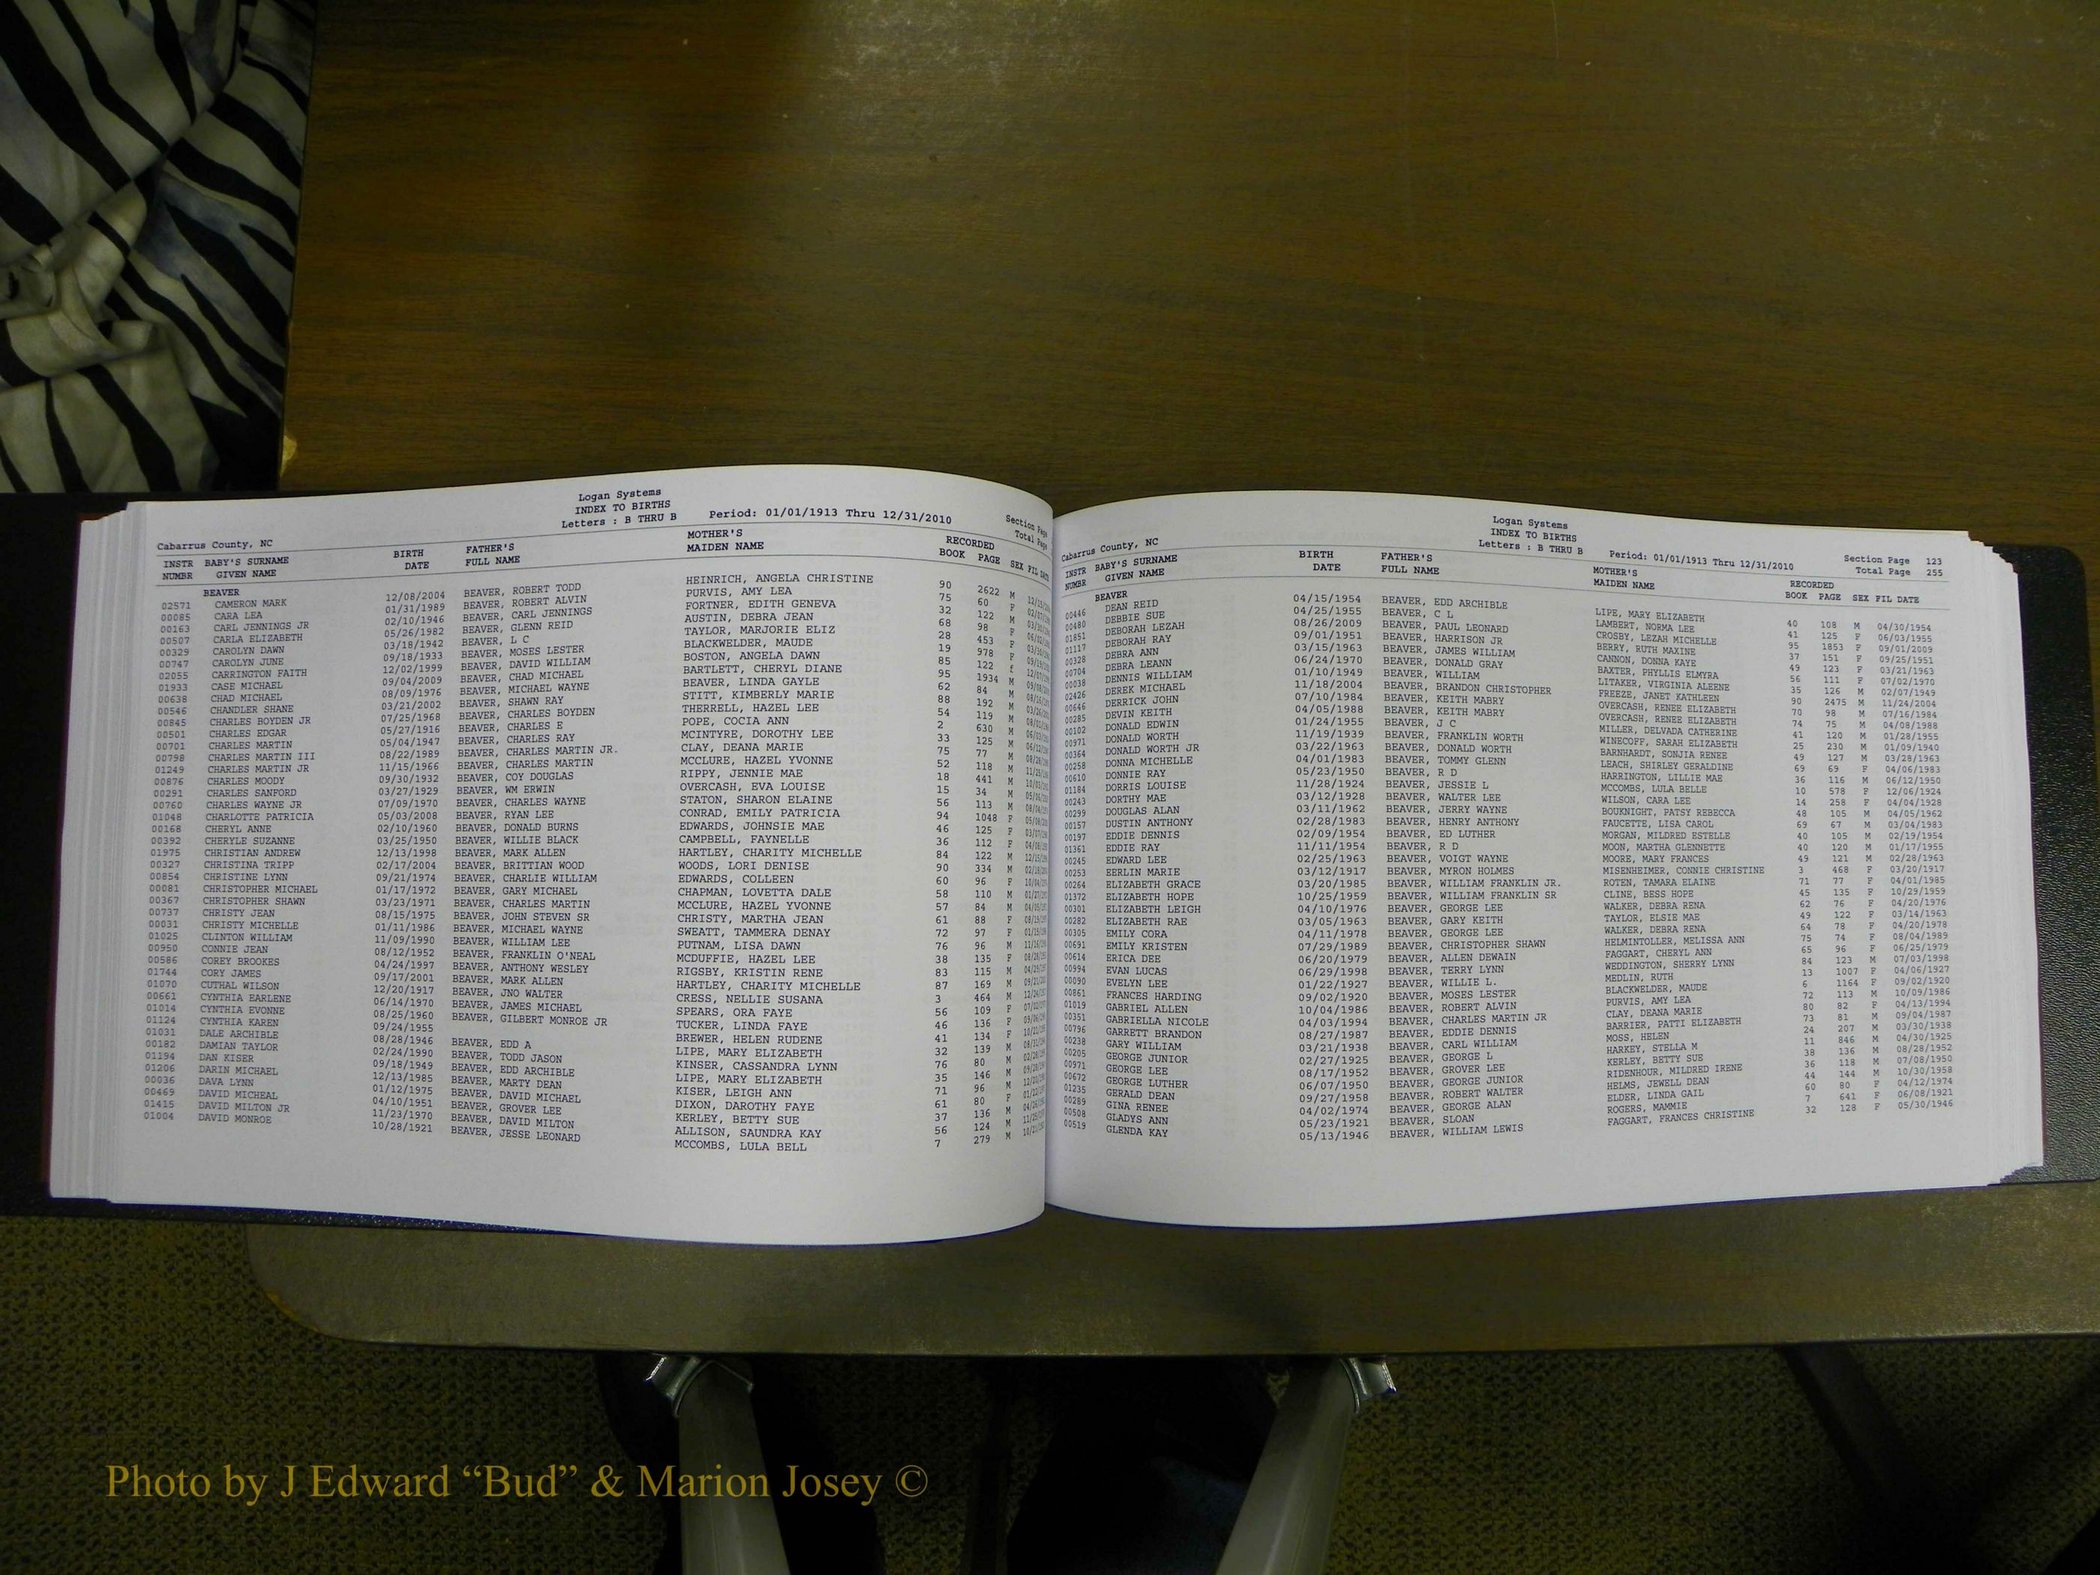 Logan Systems
INDEX TO BIRTHS
Letters : B THRU B Period: 01/01/1913 Thru 12/31/2010 Section Page
Cabarrus County, NC Total Page
INSTR BABY'S SURNAME BIRTH FATHER'S MOTHER'S RECORDED
NUMBR GIVEN NAME DATE FULL NAME MAIDEN NAME BOOK PAGE SEX FIL DATE
BEAVER
02571 CAMERON MARK 12/08/2004 BEAVER, ROBERT TODD HEINRICH, ANGELA CHRISTINE 90 2622 M
00085 CARA LEA 01/31/1989 BEAVER, ROBERT ALVIN PURVIS, AMY LEA 75 60 F
00163 CARL JENNINGS JR 02/10/1946 BEAVER, CARL JENNINGS FORTNER, EDITH GENEVA 32 122 M
00507 CARLA ELIZABETH 05/26/1982 BEAVER, GLENN REID AUSTIN, DEBRA JEAN 68 98 F
00329 CAROLYN DAWN 03/18/1942 BEAVER, L C TAYLOR, MARJORIE ELIZ 28 453 F
00747 CAROLYN JUNE 09/18/1933 BEAVER, MOSES LESTER BLACKWELDER, MAUDE 19 978 F
02055 CARRINGTON FAITH 12/02/1999 BEAVER, DAVID WILLIAM BOSTON, ANGELA DAWN 85 122 f
01933 CASE MICHAEL 09/04/2009 BEAVER, CHAD MICHAEL BARTLETT, CHERYL DIANE 95 1934 M
00638 CHAD MICHAEL 08/09/1976 BEAVER, MICHAEL WAYNE BEAVER, LINDA GAYLE 62 84 M
00546 CHANDLER SHANE 03/21/2002 BEAVER, SHAWN RAY STITT, KIMBERLY MARIE 88 192 M
00845 CHARLES BOYDEN JR 07/25/1968 BEAVER, CHARLES BOYDEN THERRELL, HAZEL LEE 54 119 M
00501 CHARLES EDGAR 05/27/1916 BEAVER, CHARLES E POPE, COCIA ANN 2 630 M
00701 CHARLES MARTIN 05/04/1947 BEAVER, CHARLES RAY MCINTYRE, DOROTHY LEE 33 125 M
00798 CHARLES MARTIN III 08/22/1989 BEAVER, CHARLES MARTIN JR. CLAY, DEANA MARIE 75 77 M
01249 CHARLES MARTIN JR 11/15/1966 BEAVER, CHARLES MARTIN MCCLURE, HAZEL YVONNE 52 118 M
00876 CHARLES MOODY 09/30/1932 BEAVER, COY DOUGLAS RIPPY, JENNIE MAE 18 441 M
00291 CHARLES SANFORD 03/27/1929 BEAVER, WM ERWIN OVERCASH, EVA LOUISE 15 34 M
00760 CHARLES WAYNE JR 07/09/1970 BEAVER, CHARLES WAYNE STATON, SHARON ELAINE 56 113 M
01048 CHARLOTTE PATRICIA 05/03/2008 BEAVER, RYAN LEE CONRAD, EMILY PATRICIA 94 1048 F
00168 CHERYL ANNE 02/10/1960 BEAVER, DONALD BURNS EDWARDS, JOHNSIE MAE 46 125 F
00392 CHERYLE SUZANNE 03/25/1950 BEAVER, WILLIE BLACK CAMPBELL, FAYNELLE 36 112 F
01975 CHRISTIAN ANDREW 12/13/1998 BEAVER, MARK ALLEN HARTLEY, CHARITY MICHELLE 84 122 M
00327 CHRISTINA TRIPP 02/17/2004 BEAVER, BRITTIAN WOOD WOODS, LORI DENISE 90 334 M
00854 CHRISTINE LYNN 09/21/1974 BEAVER, CHARLIE WILLIAM EDWARDS, COLLEEN 60 96 F
00081 CHRISTOPHER MICHAEL 01/17/1972 BEAVER, GARY MICHAEL CHAPMAN, LOVETTA DALE 58 110 M
00367 CHRISTOPHER SHAWN 03/23/1971 BEAVER, CHARLES MARTIN MCCLURE, HAZEL YVONNE 57 84 M
00737 CHRISTY JEAN 08/15/1975 BEAVER, JOHN STEVEN SR CHRISTY, MARTHA JEAN 61 88 F
00031 CHRISTY MICHELLE 01/11/1986 BEAVER, MICHAEL WAYNE SWEATT, TAMMERA DENAY 72 97 F
01025 CLINTON WILLIAM 11/09/1990 BEAVER, WILLIAM LEE PUTNAM, LISA DAWN 76 96 M
00950 CONNIE JEAN 08/12/1952 BEAVER, FRANKLIN O'NEAL MCDUFFIE, HAZEL LEE 38 135 F
00586 COREY BROOKES 04/24/1997 BEAVER, ANTHONY WESLEY RIGSBY, KRISTIN RENE 83 115 M
01744 CORY JAMES 09/17/2001 BEAVER, MARK ALLEN HARTLEY, CHARITY MICHELLE 87 169 M
01070 CUTHAL WILSON 12/20/1917 BEAVER, JNO WALTER CRESS, NELLIE SUSANA 3 464 M
00661 CYNTHIA EARLENE 06/14/1970 BEAVER, JAMES MICHAEL SPEARS, ORA FAYE 56 109 F
01014 CYNTHIA EVONNE 08/25/1960 BEAVER, GILBERT MONROE JR TUCKER, LINDA FAYE 46 136 F
01124 CYNTHIA KAREN 09/24/1955 BREWER, HELEN RUDENE 41 134 F
01031 DALE ARCHIBLE 08/28/1946 BEAVER, EDD A LIPE, MARY ELIZABETH 32 139 M
00182 DAMIAN TAYLOR 02/24/1990 BEAVER, TODD JASON KINSER, CASSANDRA LYNN 76 80 M
01194 DAN KISER 09/18/1949 BEAVER, EDD ARCHIBLE LIPE, MARY ELIZABETH 35 146 M
01206 DARIN MICHAEL 12/13/1985 BEAVER, MARTY DEAN KISER, LEIGH ANN 71 96 M
00036 DAVA LYNN 01/12/1975 BEAVER, DAVID MICHAEL DIXON, DAROTHY FAYE 61 80 F
00469 DAVID MICHEAL 04/10/1951 BEAVER, GROVER LEE KERLEY, BETTY SUE 37 136 M
01415 DAVID MILTON JR 11/23/1970 BEAVER, DAVID MILTON ALLISON, SAUNDRA KAY 56 124 M
01004 DAVID MONROE 10/28/1921 BEAVER, JESSE LEONARD MCCOMBS, LULA BELL 7 279 M
Logan Systems
INDEX TO BIRTHS
Letters : B THRU B Period: 01/01/1913 Thru 12/31/2010 Section Page 123
Cabarrus County, NC Total Page 255
INSTR BABY'S SURNAME BIRTH FATHER'S MOTHER'S RECORDED
NUMBR GIVEN NAME DATE FULL NAME MAIDEN NAME BOOK PAGE SEX FIL DATE
BEAVER
00446 DEAN REID 04/15/1954 BEAVER, EDD ARCHIBLE LIPE, MARY ELIZABETH 40 108 M 04/30/1954
00480 DEBBIE SUE 04/25/1955 BEAVER, C L LAMBERT, NORMA LEE 41 125 F 06/03/1955
01851 DEBORAH LEZAH 08/26/2009 BEAVER, PAUL LEONARD CROSBY, LEZAH MICHELLE 95 1853 F 09/01/2009
01117 DEBORAH RAY 09/01/1951 BEAVER, HARRISON JR BERRY, RUTH MAXINE 37 151 F 09/25/1951
00328 DEBRA ANN 03/15/1963 BEAVER, JAMES WILLIAM CANNON, DONNA KAYE 49 123 F 03/21/1963
00704 DEBRA LEANN 06/24/1970 BEAVER, DONALD GRAY BAXTER, PHYLLIS ELMYRA 56 111 F 07/02/1970
00038 DENNIS WILLIAM 01/10/1949 BEAVER, WILLIAM LITAKER, VIRGINIA ALEENE 35 126 M 02/07/1949
02426 DEREK MICHAEL 11/18/2004 BEAVER, BRANDON CHRISTOPHER FREEZE, JANET KATHLEEN 90 2475 M 11/24/2004
00646 DERRICK JOHN 07/10/1984 BEAVER, KEITH MABRY OVERCASH, RENEE ELIZABETH 70 98 M 07/16/1984
00285 DEVIN KEITH 04/05/1988 BEAVER, KEITH MABRY OVERCASH, RENEE ELIZABETH 74 75 M 04/08/1988
00102 DONALD EDWIN 01/24/1955 BEAVER, J C MILLER, DELVADA CATHERINE 41 120 M 01/28/1955
00971 DONALD WORTH 11/19/1939 BEAVER, FRANKLIN WORTH WINECOFF, SARAH ELIZABETH 25 230 M 01/09/1940
00364 DONALD WORTH JR 03/22/1963 BEAVER, DONALD WORTH BARNHARDT, SONJIA RENEE 49 127 M 03/28/1963
00258 DONNA MICHELLE 04/01/1983 BEAVER, TOMMY GLENN LEACH, SHIRLEY GERALDINE 69 69 F 04/06/1983
00610 DONNIE RAY 05/23/1950 BEAVER, R D HARRINGTON, LILLIE MAE 36 116 M 06/12/1950
01184 DORRIS LOUISE 11/28/1924 BEAVER, JESSIE L MCCOMBS, LULA BELLE 10 578 F 12/06/1924
00243 DORTHY MAE 03/12/1928 BEAVER, WALTER LEE WILSON, CARA LEE 14 258 F 04/04/1928
00299 DOUGLAS ALAN 03/11/1962 BEAVER, JERRY WAYNE BOUKNIGHT, PATSY REBECCA 48 105 M 04/05/1962
00157 DUSTIN ANTHONY 02/28/1983 BEAVER, HENRY ANTHONY FAUCETTE, LISA CAROL 69 67 M 03/04/1983
00197 EDDIE DENNIS 02/09/1954 BEAVER, ED LUTHER MORGAN, MILDRED ESTELLE 40 105 M 02/19/1954
01361 EDDIE RAY 11/11/1954 BEAVER, R D MOON, MARTHA GLENNETTE 40 120 M 01/17/1955
00245 EDWARD LEE 02/25/1963 BEAVER, VOIGT WAYNE MOORE, MARY FRANCES 49 121 M 02/28/1963
00253 EERLIN MARIE 03/12/1917 BEAVER, MYRON HOLMES MISENHEIMER, CONNIE CHRISTINE 3 468 F 03/20/1917
00264 ELIZABETH GRACE 03/20/1985 BEAVER, WILLIAM FRANKLIN JR. ROTEN, TAMARA ELAINE 71 77 F 04/01/1985
01372 ELIZABETH HOPE 10/25/1959 BEAVER, WILLIAM FRANKLIN SR CLINE, BESS HOPE 45 135 F 10/29/1959
00301 ELIZABETH LEIGH 04/10/1976 BEAVER, GEORGE LEE WALKER, DEBRA RENA 62 76 F 04/20/1976
00282 ELIZABETH RAE 03/05/1963 BEAVER, GARY KEITH TAYLOR, ELSIE MAE 49 122 F 03/14/1963
00305 EMILY CORA 04/11/1978 BEAVER, GEORGE LEE WALKER, DEBRA RENA 64 78 F 04/20/1978
00691 EMILY KRISTEN 07/29/1989 BEAVER, CHRISTOPHER SHAWN HELMINTOLLER, MELISSA ANN 75 74 F 08/04/1989
00614 ERICA DEE 06/20/1979 BEAVER, ALLEN DEWAIN FAGGART, CHERYL ANN 65 96 F 06/25/1979
00994 EVAN LUCAS 06/29/1998 BEAVER, TERRY LYNN WEDDINGTON, SHERRY LYNN 84 123 M 07/03/1998
00090 EVELYN LEE 01/22/1927 BEAVER, WILLIE L. MEDLIN, RUTH 13 1007 F 04/06/1927
00861 FRANCES HARDING 09/02/1920 BEAVER, MOSES LESTER BLACKWELDER, MAUDE 6 1164 F 09/02/1920
01019 GABRIEL ALLEN 10/04/1986 BEAVER, ROBERT ALVIN PURVIS, AMY LEA 72 113 M 10/09/1986
00351 GABRIELLA NICOLE 04/03/1994 BEAVER, CHARLES MARTIN JR CLAY, DEANA MARIE 80 82 F 04/13/1994
00796 GARRETT BRANDON 08/27/1987 BEAVER, EDDIE DENNIS BARRIER, PATTI ELIZABETH 73 81 M 09/04/1987
00238 GARY WILLIAM 03/21/1938 BEAVER, CARL WILLIAM MOSS, HELEN 24 207 M 03/30/1938
00205 GEORGE JUNIOR 02/27/1925 BEAVER, GEORGE L HARKEY, STELLA M 11 846 M 04/30/1925
00971 GEORGE LEE 08/17/1952 BEAVER, GROVER LEE KERLEY, BETTY SUE 38 136 M 08/28/1952
00672 GEORGE LUTHER 06/07/1950 BEAVER, GEORGE JUNIOR RIDENHOUR, MILDRED IRENE 36 118 M 07/08/1950
01235 GERALD DEAN 09/27/1958 BEAVER, ROBERT WALTER HELMS, JEWELL DEAN 44 144 M 10/30/1958
00289 GINA RENEE 04/02/1974 BEAVER, GEORGE ALAN ELDER, LINDA GAIL 60 80 F 04/12/1974
00508 GLADYS ANN 05/23/1921 BEAVER, SLOAN ROGERS, MAMMIE 7 641 F 06/08/1921
00519 GLENDA KAY 05/13/1946 BEAVER, WILLIAM LEWIS FAGGART, FRANCES CHRISTINE 32 128 F 05/30/1946
Photo by J Edward “Bud” & Marion Josey ©